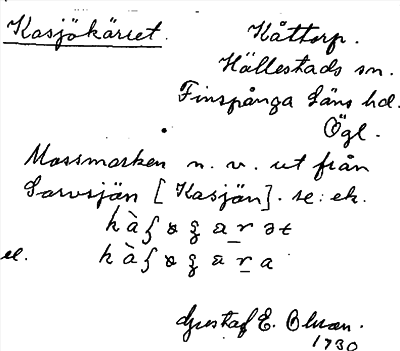 Kasjökärret. Kåttorp.
Hällestads sn.
Finspånga läns hd.
Ögl.
Mossmarken n. v. ut från
Larvsjön [Kasjön]. se: ek.
el.
Gustaf E. Olsson.
1930